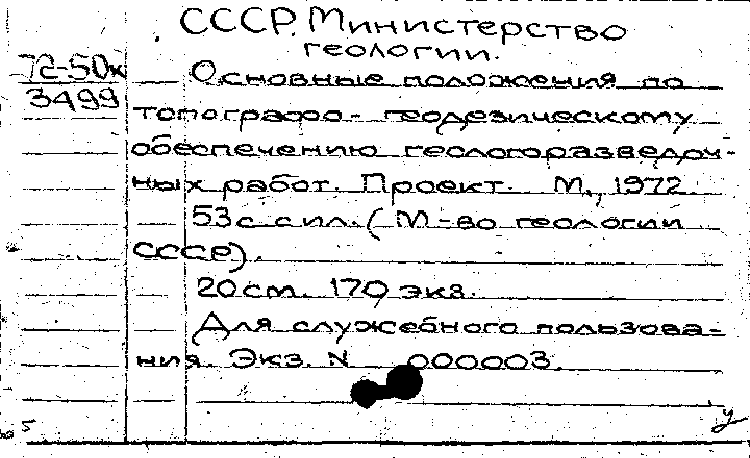 СССР. Министерство
геологии.
72-50к
3499
Основные положения по
топографо-геодезическому
обеспечению геологоразведоч-
ных работ. Проект. М., 1972.
53 с с ил. (М-во геологии
СССР).
20 см. 170 экз.
Для служебного пользова-
ния. Экз. N 000003.
5
у